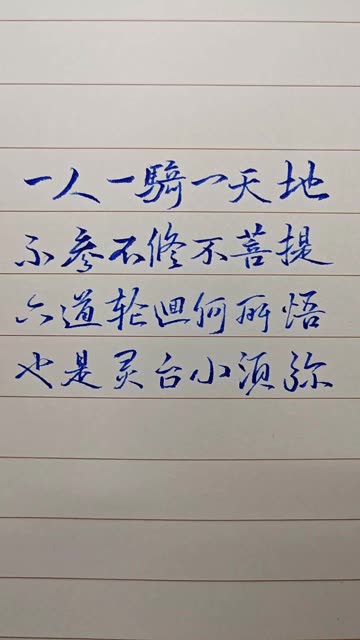 一人一騎一天地
不参不修不菩提
六道轮迴何所悟
也是灵台小须弥